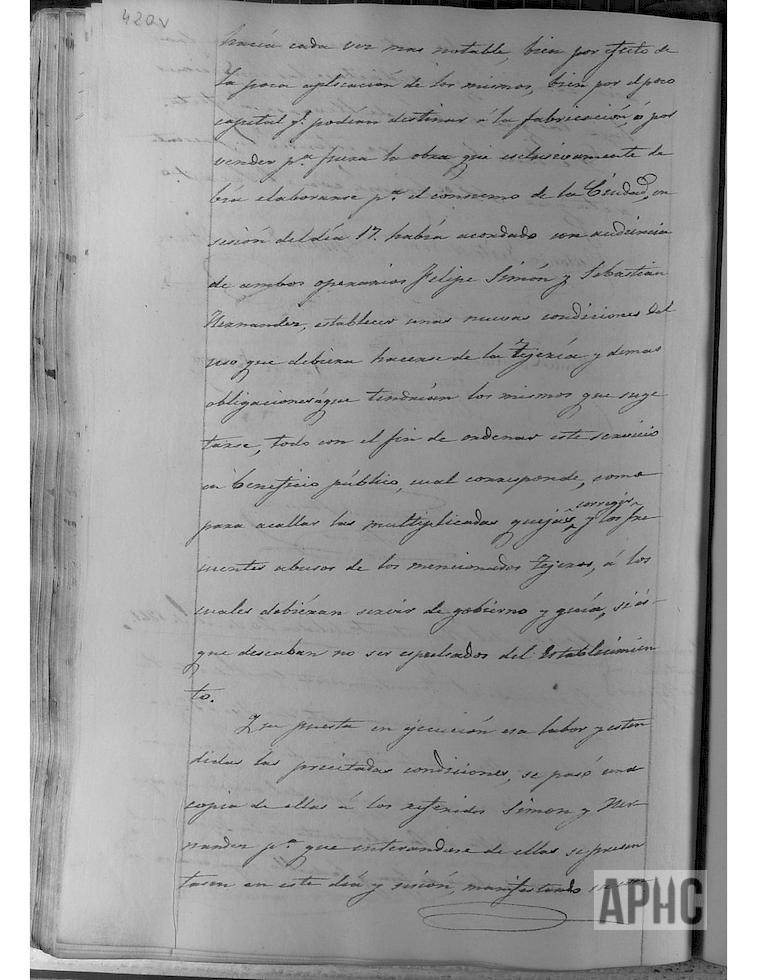 420v
hacía cada vez mas notable, bien por efecto de
la poca aplicación de los mismos, bien por el poco
capital q.e podian destinar á la fabricación, ó por
vender p.a fuera la obra que esclusivamente de
bia elaborarse p.a el consumo de la Ciudad, en
sesión del día 17. había acordado con audiencia
de ambos operarios Felipe Simón y Sebastian
Hernandez, establecer unas nuevas condiciones del
uso que debiera hacerse de la Tejería y demas
obligaciones á que tendrían los mismos que suge
tarse, todo con el fin de ordenar este servicio
en beneficio público, cual corresponde, como
para acallar las multiplicadas quejas, y corregir los fre
cuentes abusos de los mencionados Tejeros, á los
cuales debieran servir de gobierno y guía, si és
que deseaban no ser espulsados del Establecimien
to.
Que puesta en ejecución esa labor y esten
didas las precitadas condiciones, se pasó una
copia de ellas á los referidos Simon y Her-
nandez p.a que enterandose de ellas se presen
tasen en este día y sesión, manifestando
APHC